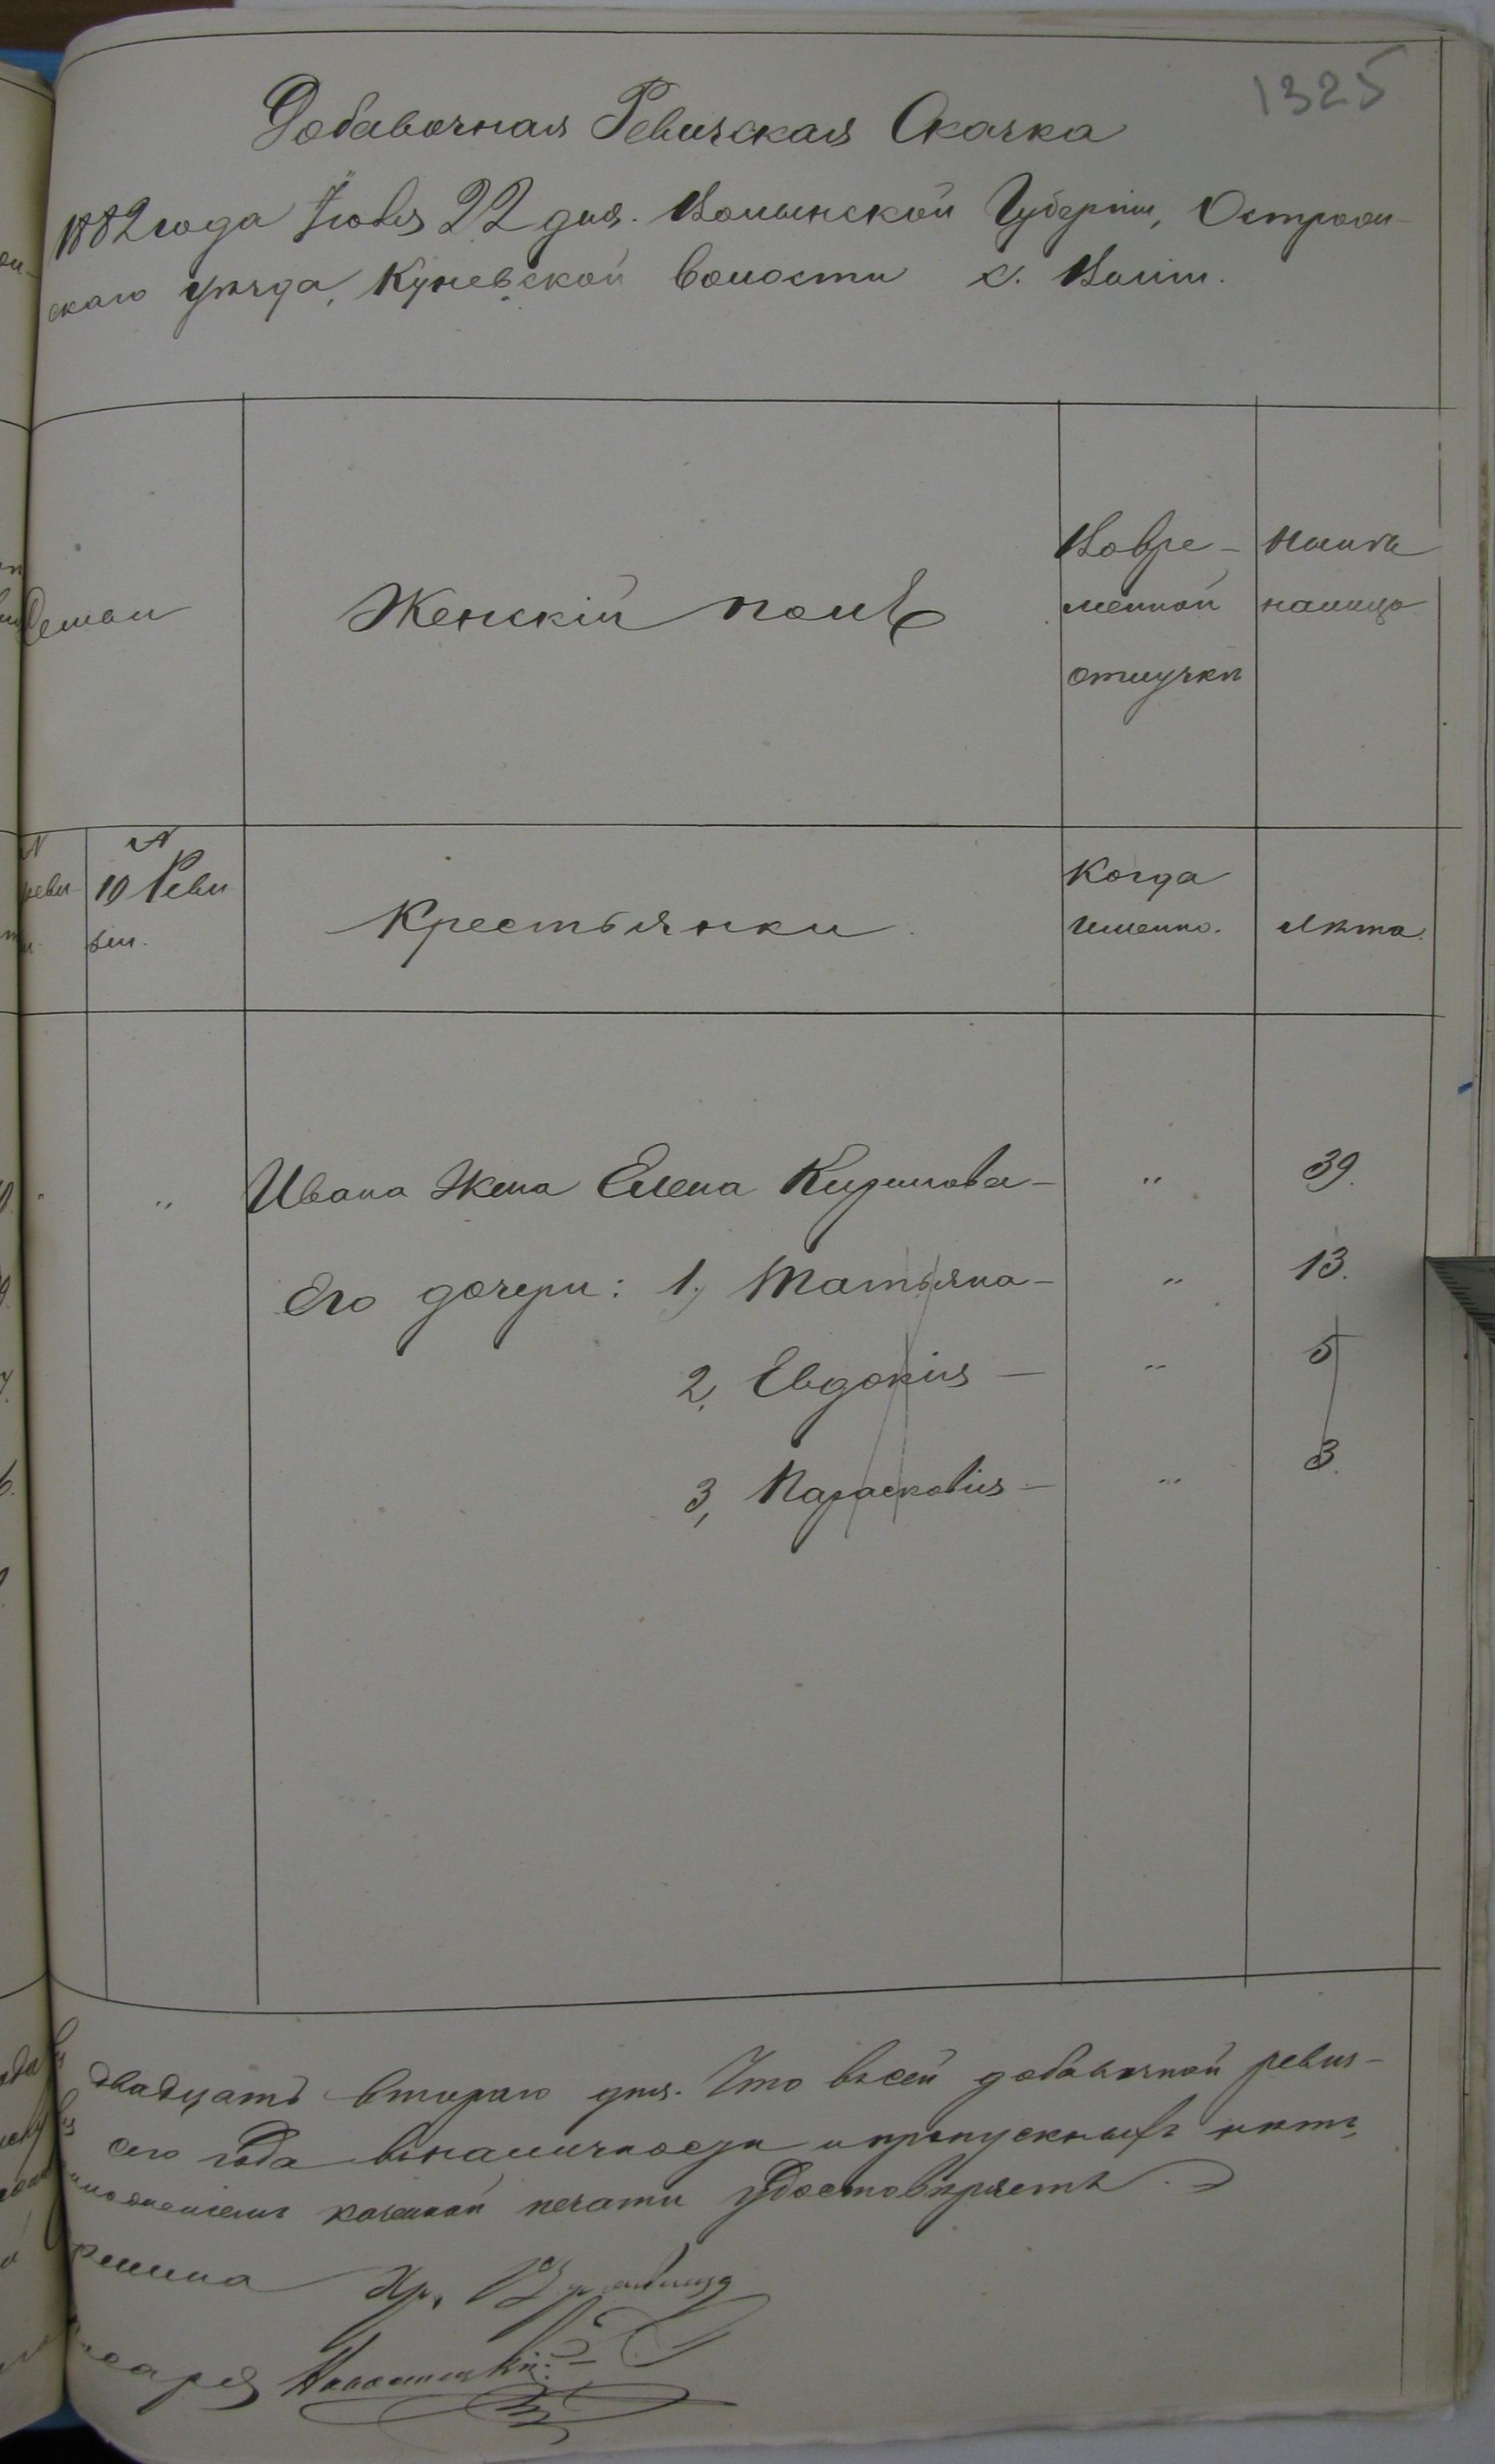 1325
Добавочная Ревизская Сказка
1882 года Іюля 22 дня. Волынской Губерніи, Острож-
скаго уѣзда, Куневской волости с. Воліи.
Женскій полъ
Вовре-
менной
отлучкѣ
Нынѣ
налицо
№
реви
№
10 Реви
зіи.
Крестьянки.
Когда
именно.
Лѣта.
" " Ивана Жена Елена Кирилова — " 39.
Его дочери: 1, Татьяна — " 13.
2, Евдокія — " 5
3, Параскевія — " 3.
двадцать втораго дня. Что въсей добавочной ревиз-
сего года вьналичности и пропускныхъ нѣтъ,
казенной печати удостовѣряетъ.